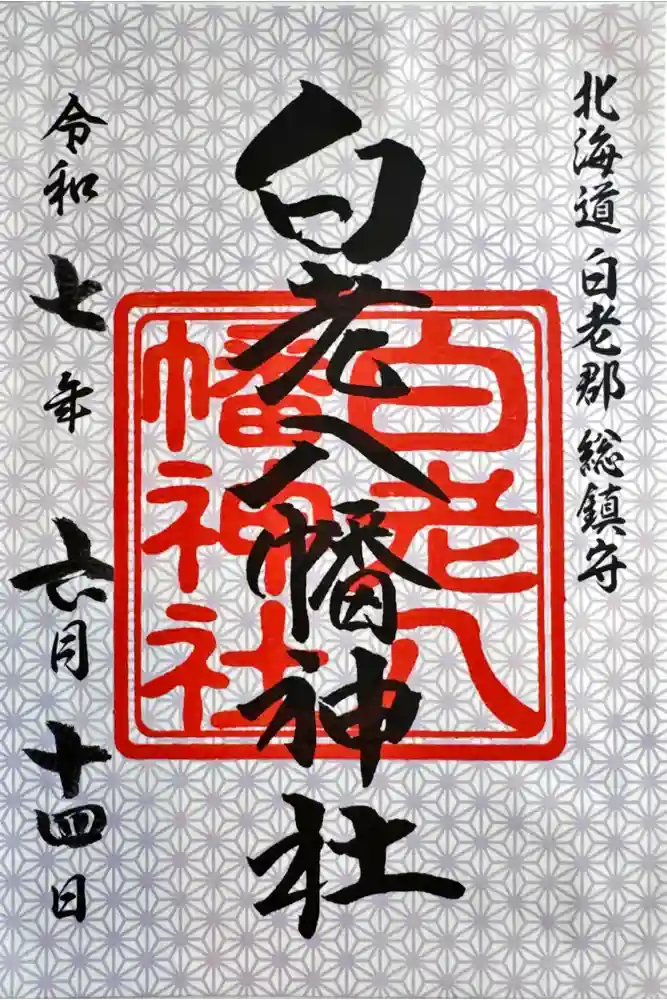 北海道 白老郡 総鎮守
白老八幡神社
白老八
幡神社
令和 七年 六月 十四日